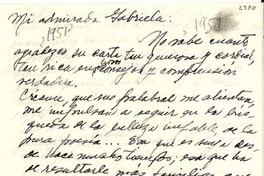 2780
Mi admirada Gabriela:
1951
1951
No sabe cuanto
agradezco su carta tan generosa y cordial,
tan rica en consejos y comprensión
verdadera.
Créame, que sus palabras me alientan,
me impulsan a seguir en la bús-
queda de la belleza inefable, de la
pura poesía... Esa que es suya des-
de hace muchos tiempos; esa que ha